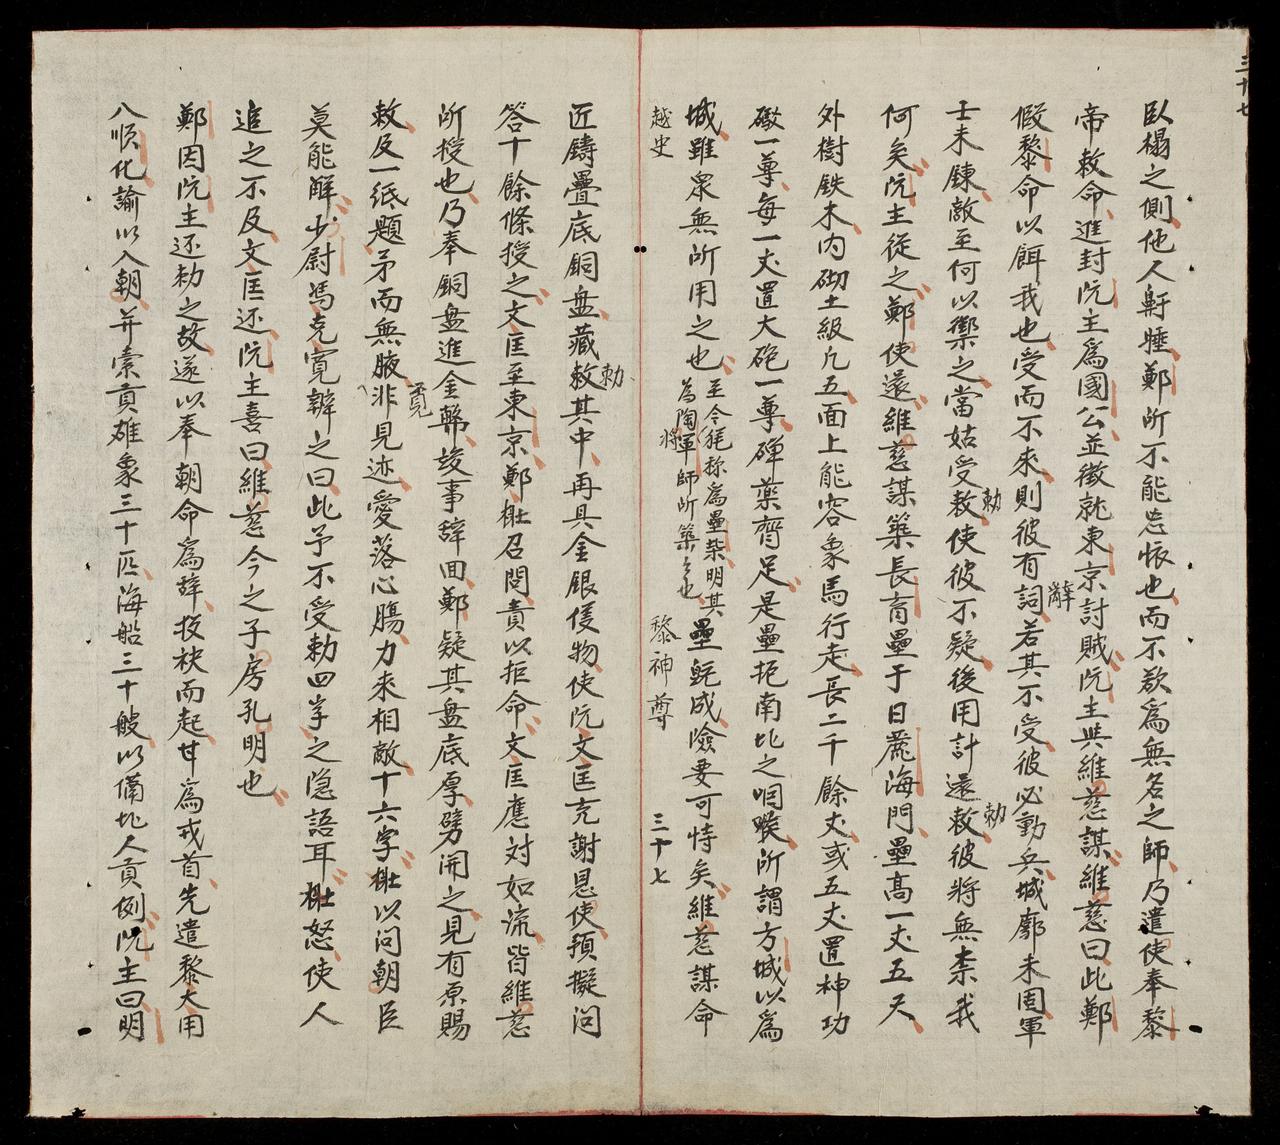 三十七
臥榻之側他人鼾睡鄭所不能忘懷也而不欲爲無名之師乃遣使奉黎
帝敕命進封阮主爲國公並徵就東京討賊阮主與維慈謀維慈曰此鄭
假黎命以餌我也受而不來則彼有詞若其不受彼必動兵城廓未固軍
辭
士未鍊敵至何以禦之當姑受敕使彼不疑後用計還敕彼將無柰我
勅
勅
何矣阮主從之鄭使還維慈謀築長育壘于日麗海門壘高一丈五尺
外樹鉄木内砌土級凡五面上能容象馬行走長二千餘丈或五丈置神功
礮一尊每一丈置大砲一尊磾藥齊足是壘扼南北之咽喉所謂方城以爲
城雖眾無所用之也至今猶称爲壘柴明其為陶軍師所築之也壘既成險要可恃矣維慈謀命
將
越史
黎神尊
三十七
匠鑄疊底銅盘藏敕其中再具金銀儀物使阮文匡充謝恩使預擬问
勅
答十餘條授之文匡至東京鄭棑召問責以拒命文匡應对如流皆維慈
所授也乃奉銅盘進金幣竣事辞回鄭疑其盘底厚劈開之見有原賜
敕及一纸題矛而無腋非見迹愛落心膓力來相敵十六字棑以问朝臣
覓
莫能解少尉馮克寬辨之曰此予不受勅四字之隐語耳棑怒使人
追之不及文匡还阮主喜曰維慈今之子房孔明也
鄭因阮主还勅之故遂以奉朝命爲辞投袂而起甘爲戎首先遣黎大用
八順化諭以入朝并索貢雄象三十匹海船三十艘以備北人貢例阮主曰明